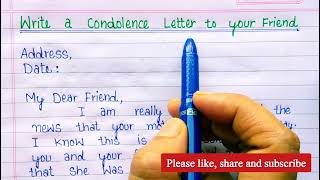 Write a Condolence Letter to your Friend.
Address,
Date:
My Dear Friend,
I am really the
news that your
I know this is
you and your
that she was
Please like, share and subscribe